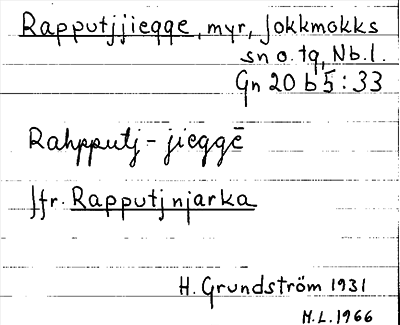 Rapputjjiegge, myr, Jokkmokks
sn o. tg, Nb. l.
Gn 20 b 5 : 33
Rahpputj - jieggē
Jfr. Rapputjnjarka
H. Grundström 1931
M.L. 1966